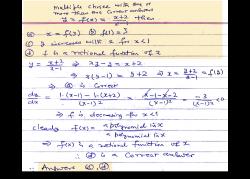 multiple choice with one or
more than one correct answers
y = f(x) = x+2/x-1 then
(a) x = f(y) (b) f(1) = 3
(c) y increases with x for x<1
(d) f is a rational function of x
y = x+2/x-1 ⇒ xy - y = x+2
⇒ x(y-1) = y+2 ⇒ x = y+2/y-1 = f(y)
⇒ (a) is correct
dy/dx = 1·(x-1) - 1·(x+2)/(x-1)² = x-1-x-2/(x-1)² = -3/(x-1)² <0
⇒ f is decreasing for x<1
clearly f(x) = a polynomial in x/a polynomial in x
⇒ f(x) is a rational function of x
∴ (d) is a correct answer
Answers (a) (d)